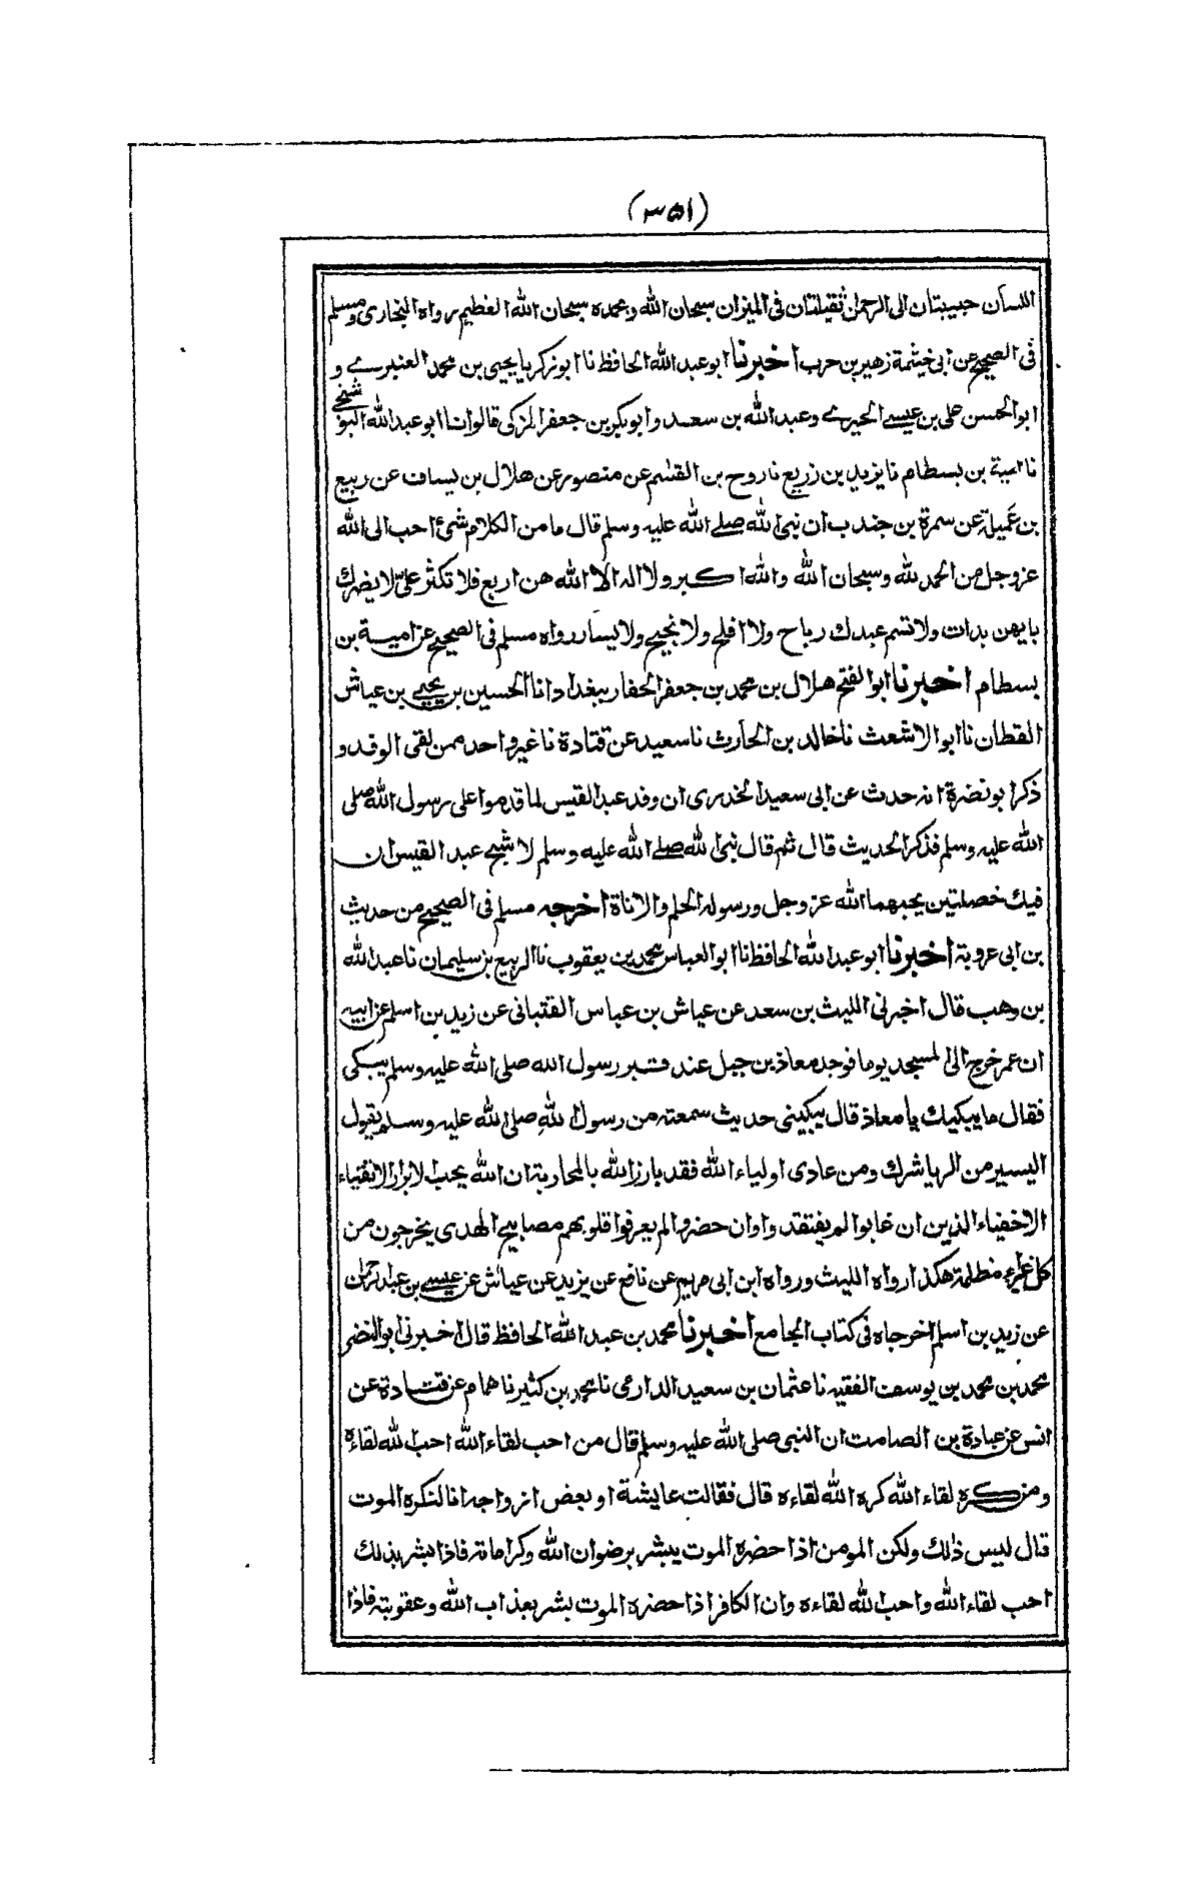 (٣٥١)
اللسان حبيبتان الى الرحمن ثقيلتان فى الميزان سبحان الله وبحمده سبحان الله العظيم رواه البخارى ومسلم
فى الصحيح عن ابى خيثمة زهير بن حرب اخبرنا ابو عبد الله الحافظ نا ابو زكريا يحيى بن محمد العنبرے و
ابو الحسن على بن عيسے الحيرے وعبد الله بن سعد وابو بكر بن جعفر المزكى قالوا نا ابو عبد الله البوشنجے
نا امية بن بسطام نا يزيد بن زريع نا روح بن القسم عن منصور عن هلال بن يساف عن ربيع
بن عَميلة عن سمرة بن جندب ان نبى الله صلے الله عليه وسلم قال ما من الكلام شئ احب الى الله
عز وجل من الحمد لله وسبحان الله والله اكبر ولا اله الا الله هن اربع فلا تكثر علىّ لا يضرك
بايهن بدات ولا تسم عبدك رباح ولا افلح ولا نجيح ولا يسار رواه مسلم فى الصحيح عن امية بن
بسطام اخبرنا ابو الفتح هلال بن محمد بن جعفر الحفار ببغداد انا الحسين بن يحيے بن عياش
القطان نا ابو الاشعث نا خالد بن الحارث نا سعيد عن قتادة نا غير واحد ممن لقى الوفد و
ذكر ابو نضرة انه حدث عن ابى سعيد الخدرى ان وفد عبد القيس لما قدموا على رسول الله صلى
الله عليه وسلم فذكر الحديث قال ثم قال نبى الله صلے الله عليه وسلم لا شج عبد القيس ان
فيك خصلتين يحبهما الله عز وجل ورسوله الحلم والاناة اخرجه مسلم فى الصحيح من حديث
بن ابى عروبة اخبرنا ابو عبد الله الحافظ نا ابو العباس محمد بن يعقوب نا الربيع بن سليمان نا عبد الله
بن وهب قال اخبرنى الليث بن سعد عن عياش بن عباس القتبانى عن زيد بن اسلم عن ابيه
ان عمر خرج الى المسجد يوما فوجد معاذ بن جبل عند قبر رسول الله صلى الله عليه وسلم يبكى
فقال ما يبكيك يا معاذ قال يبكينى حديث سمعته من رسول الله صلى الله عليه وسلم يقول
اليسير من الريا شرك ومن عادى اولياء الله فقد بارز الله بالمحاربة ان الله يحب الابرار الاتقياء
الاخفياء الذين ان غابوا لم يفتقدوا وان حضروا لم يعرفوا قلوبهم مصابيح الهدى يخرجون من
كل غبراء مظلمة هكذا رواه الليث ورواه ابن ابى مريم عن نافع عن يزيد عن عياش عن عيسے بن عبد الرحمن
عن زيد بن اسلم اخرجاه فى كتاب الجامع اخبرنا محمد بن عبد الله الحافظ قال اخبرنى ابو النضر
محمد بن محمد بن يوسف الفقيه نا عثمان بن سعيد الدارمى نا محمد بن كثير نا همام عن قتادة عن
انس عن عبادة بن الصامت ان النبى صلى الله عليه وسلم قال من احب لقاء الله احب الله لقاءه
ومن كره لقاء الله كره الله لقاءه قال فقالت عايشة او بعض ازواجه انا لنكره الموت
قال ليس ذلك ولكن المومن اذا حضره الموت يبشر برضوان الله وكرامته فاذا بشر بذلك
احب لقاء الله واحب الله لقاءه وان الكافر اذا حضره الموت بشر بعذاب الله وعقوبته فاذا